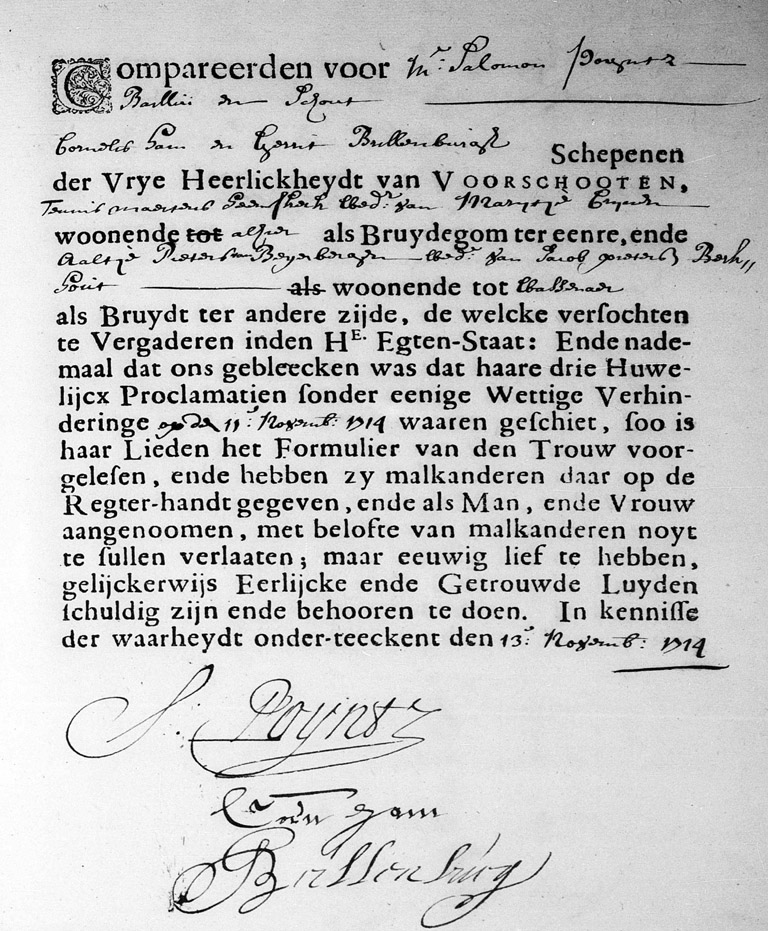 Compareerden voor Mr. Salomon Poyntz
Bailliu en Schout
Cornelis Ham en Gerrit Bullenburgh
Schepenen
der Vrye Heerlickheydt van VOORSCHOOTEN,
Teunis Maertens wedr. van Marytje
woonende tot als Bruydegom ter eenre, ende
Aaltje Pieters van Beyerbergen wed. van Jacob Pieters Berk„
hout als woonende tot Wassenaer
als Bruydt ter andere zijde, de welcke verſochten
te Vergaderen inden HE. Egten-Staat: Ende nade-
maal dat ons gebleecken was dat haare drie Huwe-
lijcx Proclamatien ſonder eenige Wettige Verhin-
deringe op den 11e. Novemb: 1714 waaren geſchiet, ſoo is
haar Lieden het Formulier van den Trouw voor-
geleſen, ende hebben zy malkanderen daar op de
Regter-handt gegeven, ende als Man, ende Vrouw
aangenoomen, met belofte van malkanderen noyt
te ſullen verlaaten; maar eeuwig lief te hebben,
gelijckerwijs Eerlijcke ende Getrouwde Luyden
ſchuldig zijn ende behooren te doen. In kenniſſe
der waarheydt onder-teeckent den 13e. Novemb: 1714
S. Poyntz
Corn Ham
Bullenburg